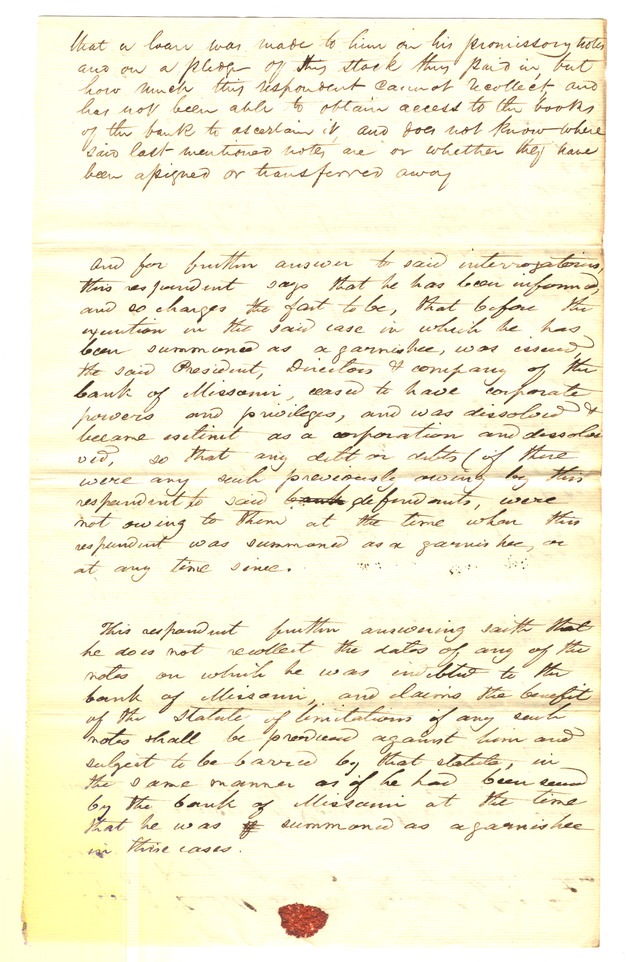 that a loan was made to him on his promissory notes
and on a pledge of the stock they paid in, but
how much this respondent cannot recollect, and
has not been able to obtain access to the books
of the bank to ascertain it, and does not know where
said last mentioned notes are or whether they have
been assigned or transferred away
and for further answer to said interrogatories,
this respondent says that he has been informed,
and so charges the fact to be, that before the
execution in the said case in which he has
been summoned as a garnishee, was issued,
the said President, Directors & company of the
bank of Missouri, ceased to have corporate
powers and privileges, and was dissolved &
became extinct as a corporation and dissol
ved, so that any debt or debts (if there
were any such previously owing by this
respondent to said bank defendants, were
not owing to them at the time when this
respondent was summoned as a garnishee, or
at any time since.
This respondent further answering saith that
he does not recollect the dates of any of the
notes on which he was indebted to the
bank of Missouri, and claims the benefit
of the statute of limitations if any such
notes shall be produced against him and
subject to be barred by that statute, in
the same manner as if he had been sued
by the bank of Missouri at the time
that he was if summoned as a garnishee
in these cases.